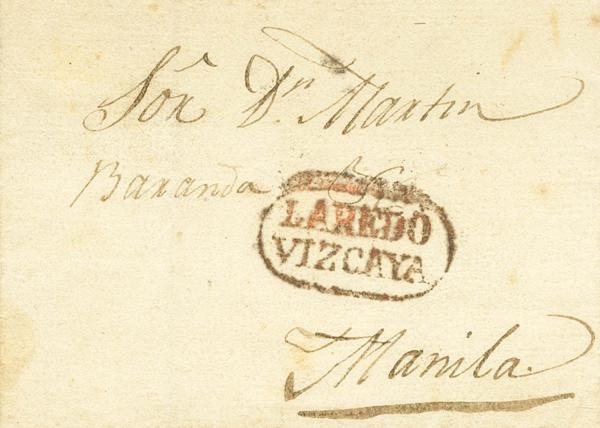 Sōr Dn Martin
Baranda
LAREDO
VIZCAYA
Manila.